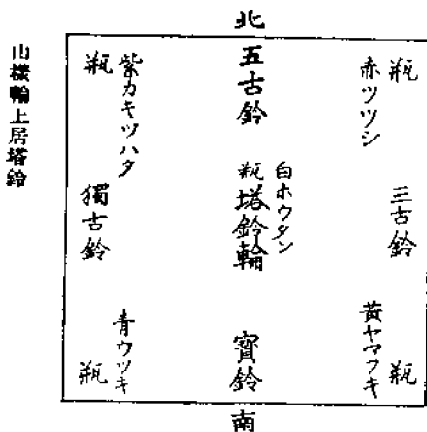 北
瓶
赤ツツシ
三古鈴
黄ヤマフキ
瓶
五古鈴
白ホウタン
瓶
塔鈴輪
寳鈴
紫カキツハタ
瓶
獨古鈴
青ウツキ
瓶
南
山樣輪上居塔鈴